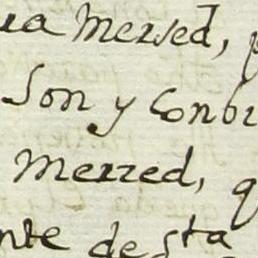 ua Mersed, p
Son y Conbi
Merzed, q
nte de sta